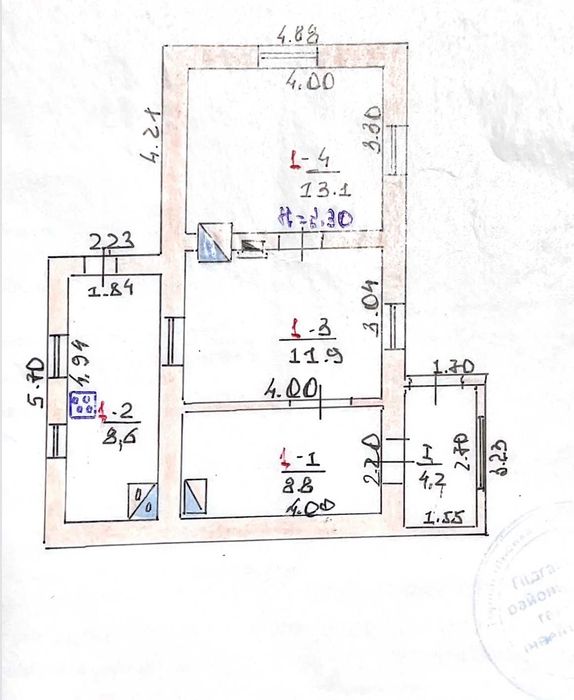 4.88
4.00
4.21
3.30
1-4
13.1
H=2.30
2.23
1.84
3.04
1-3
11.9
5.70
4.94
1-2
8,6
4.00
1.70
1-I
8.8
4.00
2.20
I
4.2
2.70
3.23
1.55